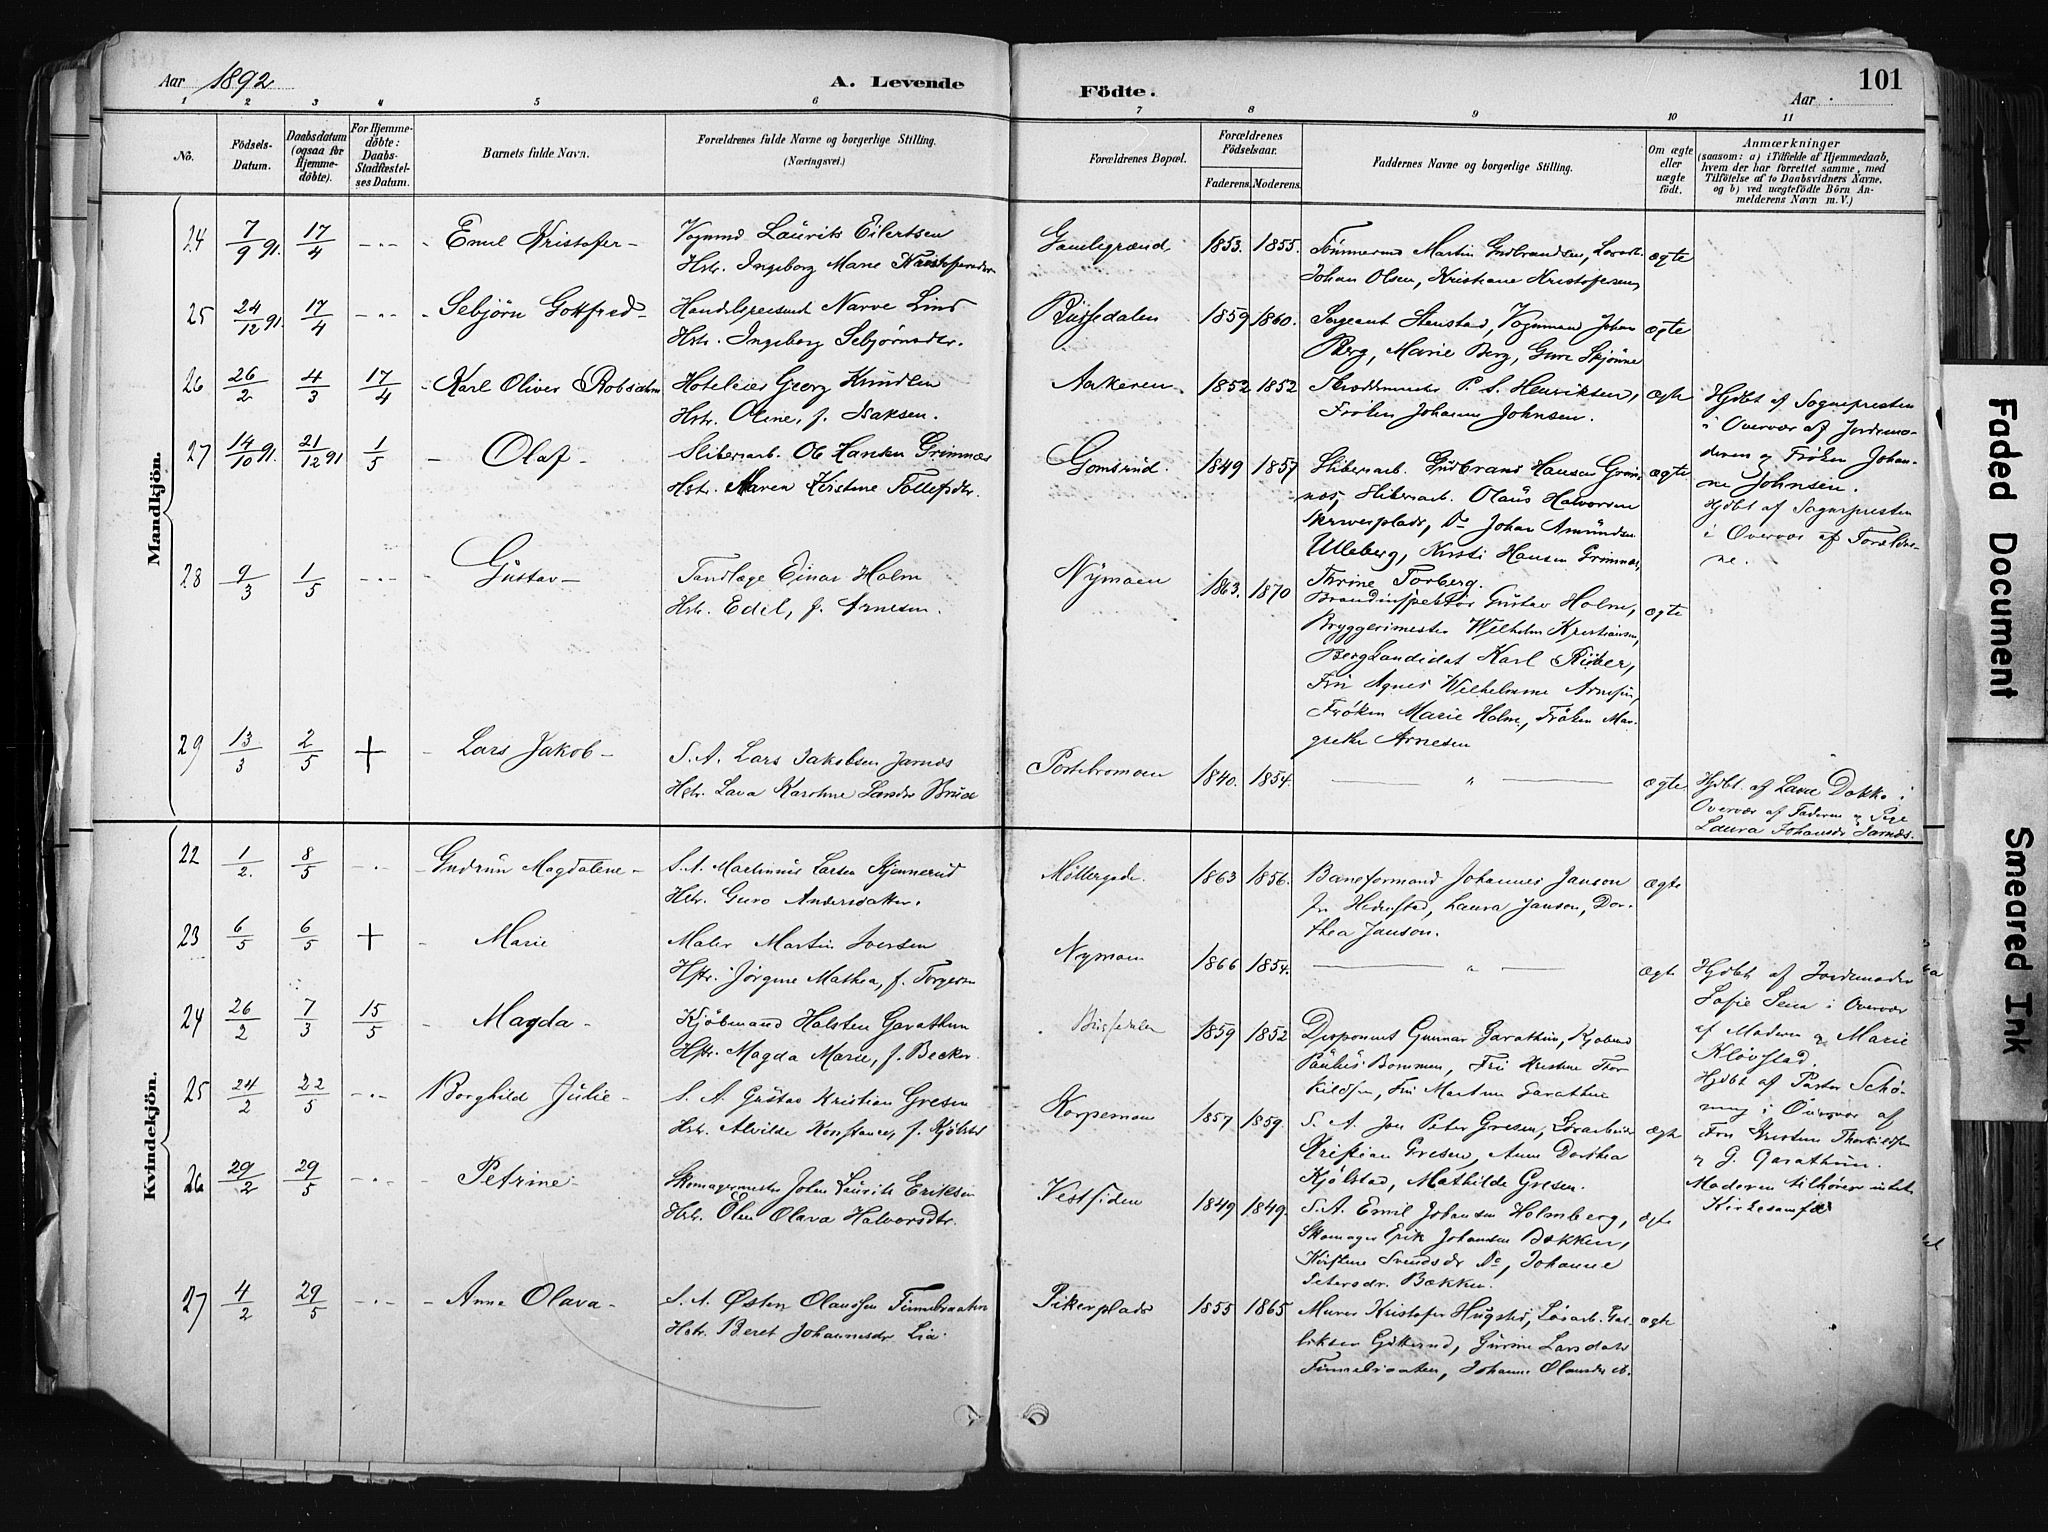 Aar 1892
A. Levende
Fødte.
Aar
101
1 2 3 4 5 6 7 8 9 10 11
No.
Födsels-
Datum.
Daabsdatum
(ogsaa for
Hjemme-
döbte).
For Hjemme-
döbte:
Daabs-
Stadfæstel-
ses Datum.
Barnets fulde Navn.
Forældrenes fulde Navne og borgerlige Stilling.
(Næringsvei.)
Forældrenes Bopæl.
Forældrenes
Födselsaar.
Faderens. Moderens.
Faddernes Navne og borgerlige Stilling.
Om ægte
eller
uægte
födt.
Anmærkninger
(saasom: a) i Tilfælde af Hjemmedaab,
hvem der har forrettet samme, med
Tilföielse af to Daabsvidners Navne,
og b) ved uægtefödte Börn An-
melderens Navn m. V.)
Mandkjön.
24 7/9 91. 17/4 Emil Kristofer
Vognmd Laurits Eilertsen
Hstr. Ingeborg Marie Kristofersdr
Gamlegrænd 1853. 1855.
Tømmermd Martin Gudbrandsen,
Johan Olsen, Kristiane Kristofersen
ægte
25 24/12 91. 17/4 Sebjörn Gottfred
Narve Lind
Hstr. Ingeborg Sebjörnsdtr.
Bussedalen 1859 1860.
Sergeant Stenstad, Vognmand Johan
Berg, Marie Berg, Guro Skjönne
ægte
26 26/2 4/3 17/4 Karl Oliver Robsahm
Hoteleier Georg Knudsen
Hstr. Oline, f. Isaksen.
Aakeren 1852 1852
P. S. Henriksen,
Frøken Johanne Johnsen.
ægte
Hjdbt af Sognepresten
i Overvær af Jordemo-
deren og Frøken Johan-
ne Johnsen.
27 14/10 91. 21/12 91 1/5 Olaf
Sliberarb. Ole Hansen Grimnæs
Hstr. Maren Kirstine Tollefsdtr.
Gomsrud. 1849 1857
Sliberarb. Gudbrand Hansen Grim-
næs, Sliberarb. Olaus Halvorsen
Skriverplads, Do Johan Amundsen
Ulleberg, Kirsti Hansen Grimnæs,
Thrine Torberg.
ægte
Hjdbt af Sognepresten
i Overvær af Forældre-
ne.
28 9/3 1/5 Gustav
Tandlæge Einar Holm
Hstr. Edel, f. Arnesen.
Nymoen 1863. 1870
Brandinspektør Gustav Holm,
Bryggerimester Wilhelm Kristiansen,
Bergkandidat Karl Riiber,
Fru Agnes Wilhelmine Arnesen,
Frøken Marie Holm, Frøken Mar-
grethe Arnesen
ægte
29 13/3 2/5 + Lars Jakob
S. A. Lars Jakobsen Jarnæs
Hstr. Lava Karoline Larsdr
Portebromoen 1840. 1854.
"
ægte
Hjdbt. af Lava Dokka i
Overvær af Faderen og Pige
Laura Johansdr Jarnæs.
Kvindekjön.
22 1/2. 8/5 Gudrun Magdalene
S. A. Martinius Larsen Kjennerud
Hstr. Guro Andersdatter.
Møllergade. 1863 1856.
Baneformand Johannes Janson
fr. Hedenstad, Laura Janson, Dor-
thea Janson.
ægte
23 6/5 6/5 + Marie
Maler Martin Iversen
Hstr. Jørgine Mathea, f. Torgersen
Nymoen 1866 1854.
"
ægte
Hjdbt af Jordemoder
Sofie i Overvær
af Moderen og Marie
Kløvstad.
24 26/2 7/3 15/5 Magda
Kjøbmand Halsten Garathun
Hstr. Magda Marie, f. Becker
Bussedalen 1859 1852
Disponent Gunnar Garathun, Kjøbmd
Paulus Bommen, Fru Kristine Thor-
kildsen, Fru Martine Garathun
Hjdbt af Pastor Schø-
ning i Overvær af
Fru Kristine Thorkildsen
og G. Garathun.
Moderen tilhører intet
Kirkesamfd
25 24/2 22/5 Borghild Julie
S. A. Gustav Kristian Gresen
Hstr. Alvilde Konstance, f. Kjölstad
Korpemoen 1857. 1859.
S. A. Jon Peter Gresen,
Kristian Gresen, Anne Dorthea
Kjölstad, Mathilde Gresen.
ægte
26 29/2 29/5 Petrine
Skomagermester Johan Laurits Eriksen
Hstr. Olava Halvorsdtr.
Vestsiden 1849 1849.
S. A. Emil Johansen Holmberg,
Skomager Erik Johansen Bækken,
Kirstine Svendsdr Do, Johanne
Petersdr. Bækken.
ægte
27 4/2 29/5 Anne Olava
S. A. Østen Olaussen Finnebraaten
Hstr. Beret Johannesdr Lia
Pikerplads 1855 1865
Murer Kristofer Hugsted,
Gurine Larsdatter
Finnebraaten, Johanne Olausdr ib.
ægte
Faded Document
Smeared Ink